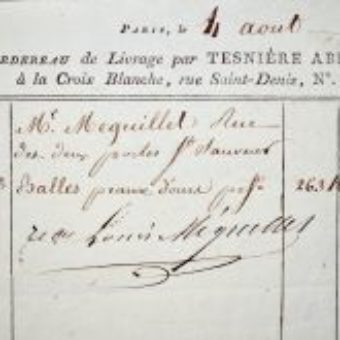 Paris, le 4 août
RDEREAU de Livrage par TESNIÈRE AB
à la Croix Blanche, rue Saint-Denis, N°.
Mr. Mequillet Rue
des deux portes St Sauveur
Balles peaux d'ours 263
Louis Méquillet